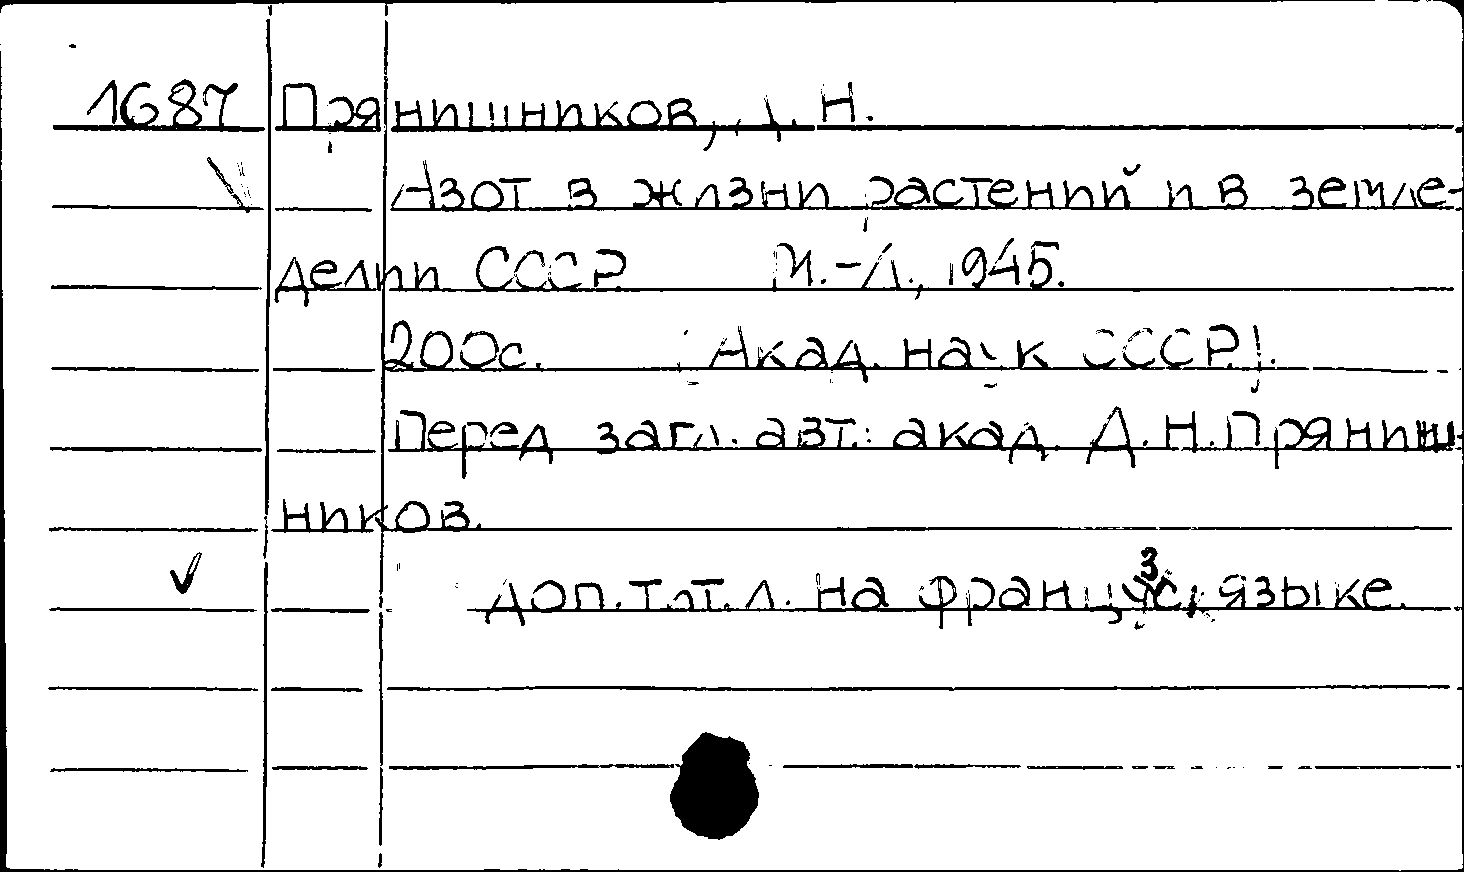 1687 Прянишников, Д. Н.
Азот в жизни растений и в земле-
делии СССР М.-Л., 1945.
200с. (Акад. наук СССР).
Перед загл. авт.: акад. Д.Н.Пряниш-
ников.
Доп. тит. л. на французск языке.